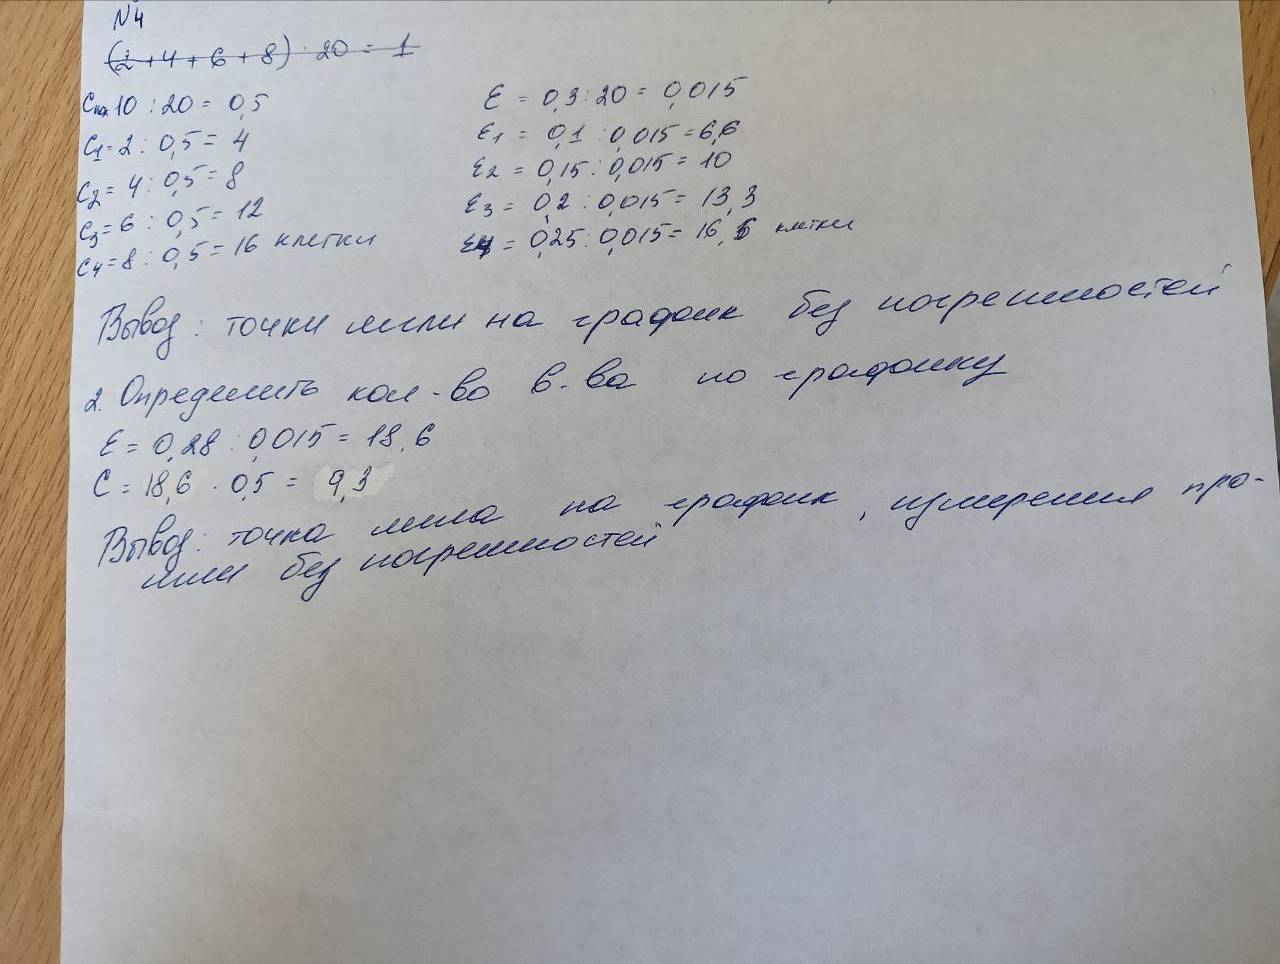 N4
(2+4+6+8) · 20 = 1
Cпол 10 : 20 = 0,5
C1 = 2 : 0,5 = 4
C2 = 4 : 0,5 = 8
C3 = 6 : 0,5 = 12
C4 = 8 : 0,5 = 16 клетки
E = 0,3 : 20 = 0,015
E1 = 0,1 : 0,015 = 6,6
E2 = 0,15 : 0,015 = 10
E3 = 0,2 : 0,015 = 13,3
E4 = 0,25 : 0,015 = 16,6 клетки
Вывод: точки легли на график без погрешностей
2. Определить кол-во в-ва по графику
E = 0,28 : 0,015 = 18,6
C = 18,6 · 0,5 = 9,3
Вывод: точка легла на график, измерения про-
шли без погрешностей